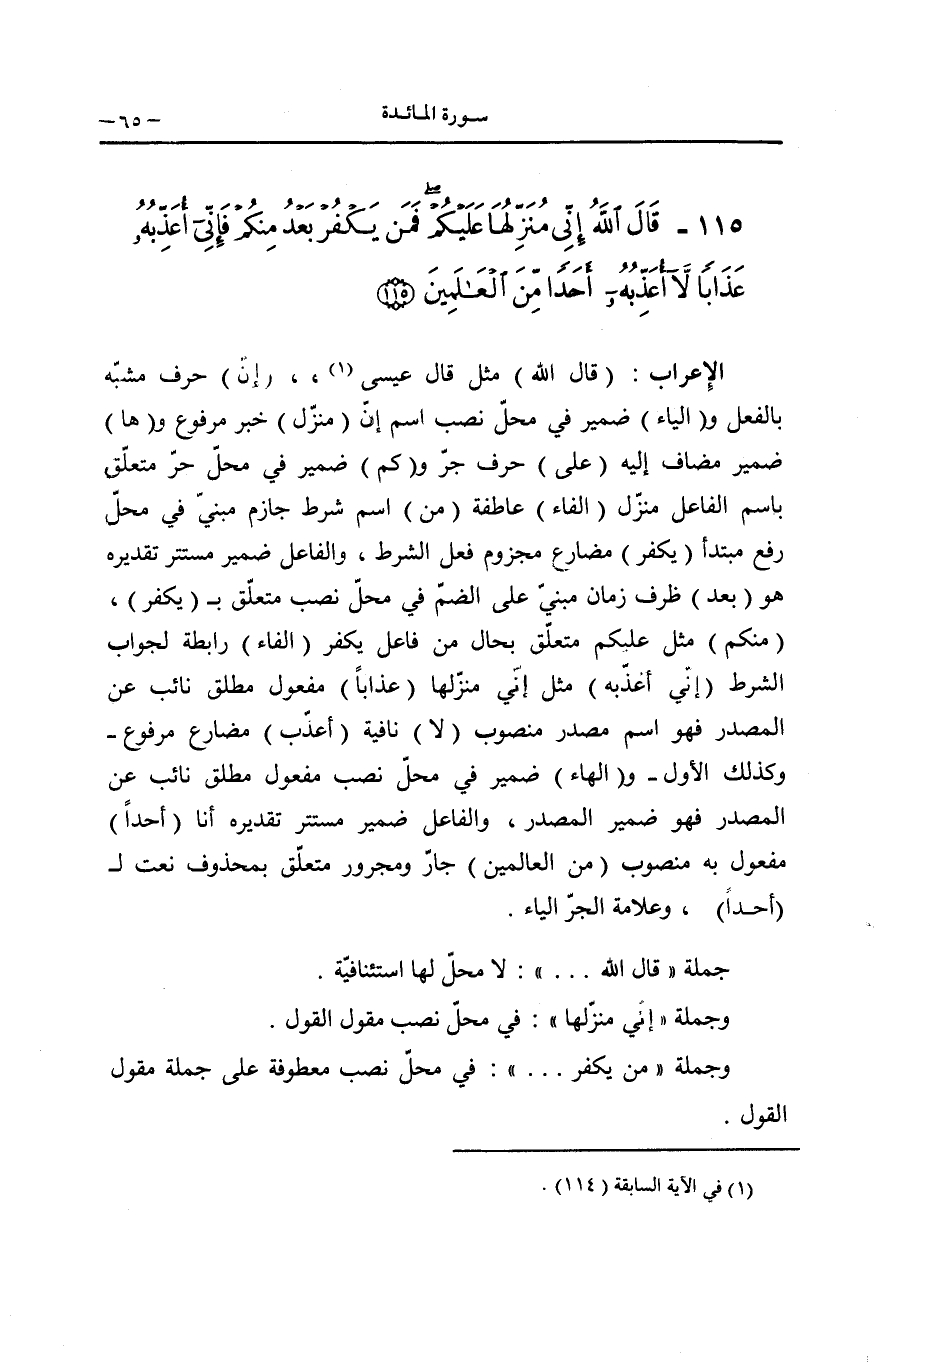 سورة المائدة
– ٦٥ –
١١٥ – قَالَ ٱللَّهُ إِنِّى مُنَزِّلُهَا عَلَيْكُمْ ۖ فَمَن يَكْفُرْ بَعْدُ مِنكُمْ فَإِنِّىٓ أُعَذِّبُهُۥ
عَذَابًا لَّآ أُعَذِّبُهُۥٓ أَحَدًا مِّنَ ٱلْعَـٰلَمِينَ ﴿١١٥﴾
الإعراب : ( قال الله ) مثل قال عيسى (١) ، ، ( إنّ ) حرف مشبّه
بالفعل و( الياء ) ضمير في محلّ نصب اسم إنّ ( منزّل ) خبر مرفوع و( ها )
ضمير مضاف إليه ( على ) حرف جرّ و( كم ) ضمير في محلّ حرّ متعلّق
باسم الفاعل منزّل ( الفاء ) عاطفة ( من ) اسم شرط جازم مبنيّ في محلّ
رفع مبتدأ ( يكفر ) مضارع مجزوم فعل الشرط ، والفاعل ضمير مستتر تقديره
هو ( بعد ) ظرف زمان مبنيّ على الضمّ في محلّ نصب متعلّق بـ ( يكفر ) ،
( منكم ) مثل عليكم متعلّق بحال من فاعل يكفر ( الفاء ) رابطة لجواب
الشرط ( إنّي أعذّبه ) مثل إنّي منزّلها ( عذاباً ) مفعول مطلق نائب عن
المصدر فهو اسم مصدر منصوب ( لا ) نافية ( أعذّب ) مضارع مرفوع –
وكذلك الأول – و( الهاء ) ضمير في محلّ نصب مفعول مطلق نائب عن
المصدر فهو ضمير المصدر ، والفاعل ضمير مستتر تقديره أنا ( أحداً )
مفعول به منصوب ( من العالمين ) جارّ ومجرور متعلّق بمحذوف نعت لـ
(أحداً) ، وعلامة الجرّ الياء .
جملة « قال الله . . . » : لا محلّ لها استئنافيّة .
وجملة « إنّي منزّلها » : في محلّ نصب مقول القول .
وجملة « من يكفر . . . » : في محلّ نصب معطوفة على جملة مقول
القول .
(١) في الآية السابقة ( ١١٤ ) .